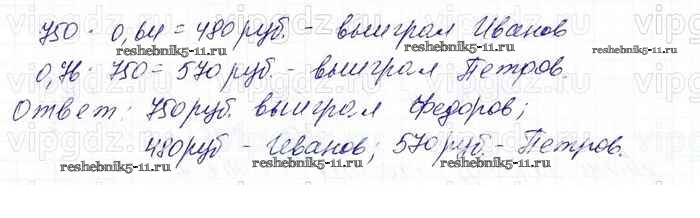 750 · 0,64 = 480 руб. - выиграл Иванов
reshebnik5-11.ru.
reshebnik5-11.ru.
0,76 · 750 = 570 руб. - выиграл Петров.
reshebnik5-11.ru.
reshebnik5-11.ru.
Ответ: 750 руб. выиграл Федоров;
480 руб - Иванов; 570 руб. - Петров.
reshebnik5-11.ru.
reshebnik5-11.ru.